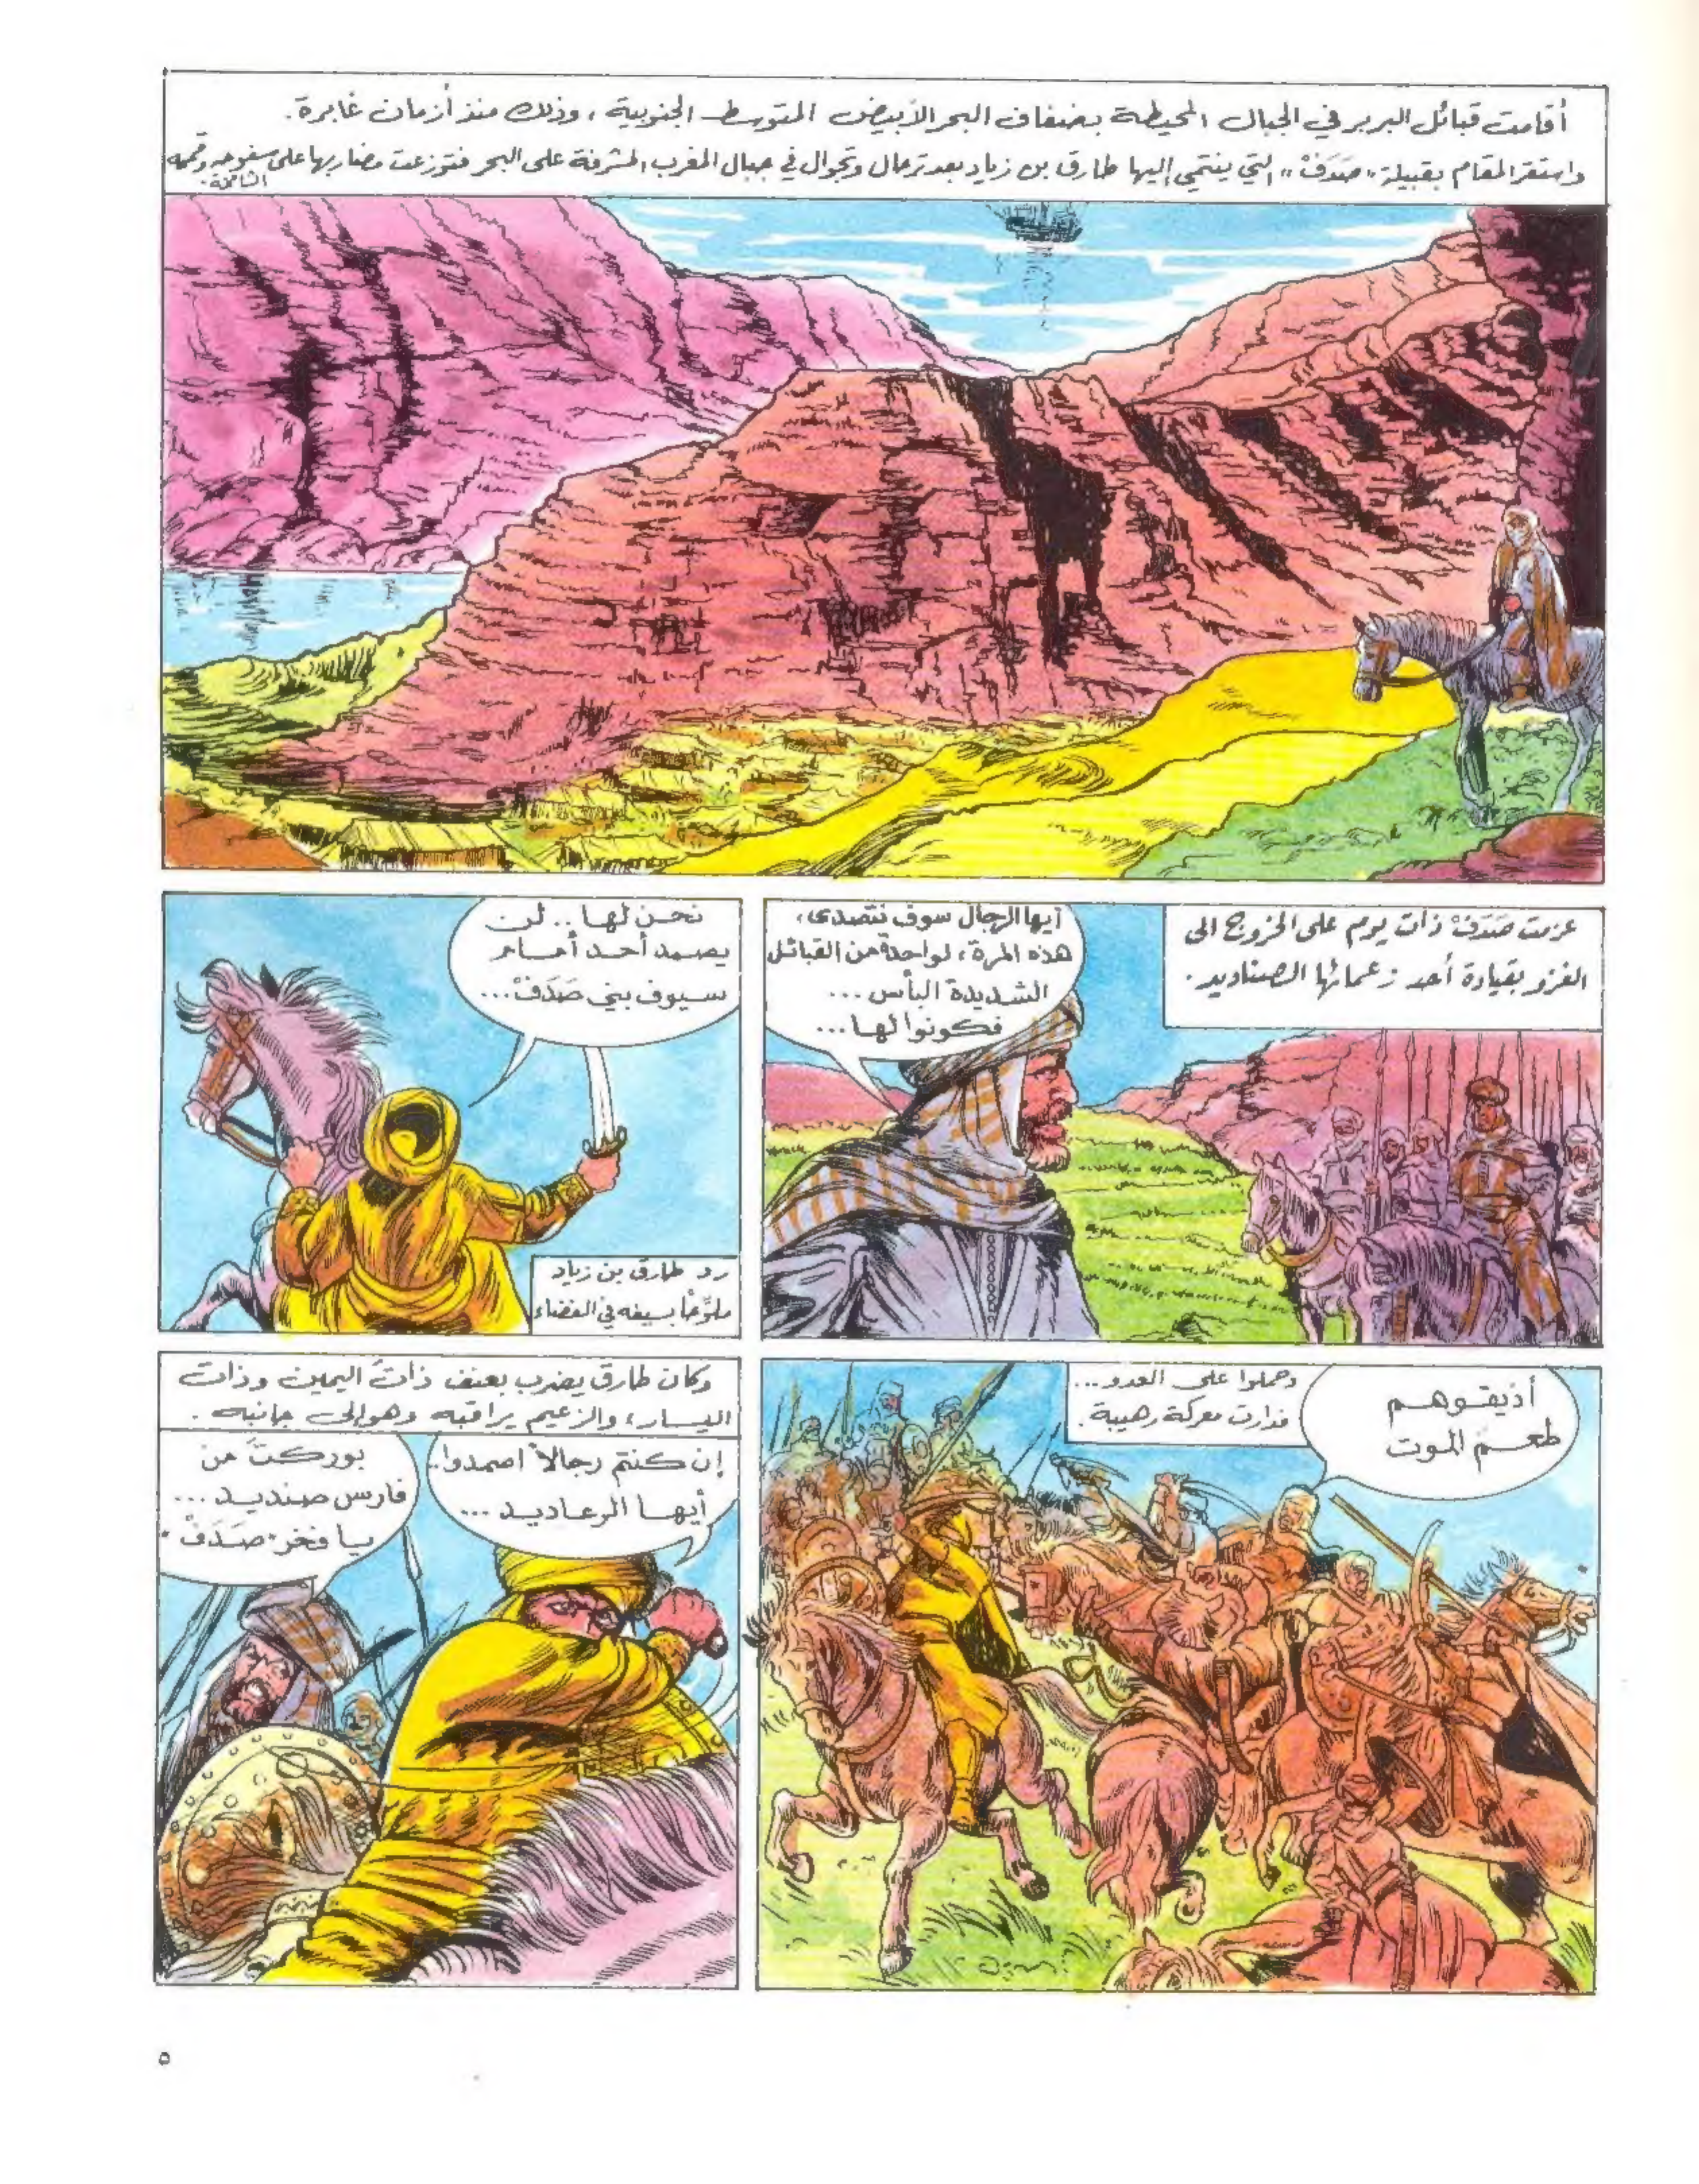 أقامت قبائل البربر في الجبال المحيطة بضفاف البحر الأبيض المتوسط الجنوبية، وذلك منذ أزمان غابرة.
واستقر المقام بقبيلة "صَدَفْ" التي ينتمي إليها طارق بن زياد بعد ترحال وتجوال في جبال المغرب المشرفة على البحر فتوزعت مضاربها على سفوحه وقممه
الشامخة.
عزمت صَدَفْ ذات يوم على الخروج الى
الغزو بقيادة أحد زعمائها الصناديد.
أيها الرجال سوف نتصدى،
هذه المرة، لواحدة من القبائل
الشديدة البأس ...
فكونوا لها...
نحن لها .. لن
يصمد أحد أمام
سيوف بني صَدَفْ...
رد طارق بن زياد
ملوّحًا بسيفه في الفضاء
أذيقوهم
طعم الموت
وحملوا على العدو...
فدارت معركة رهيبة.
وكان طارق يضرب بعنف ذاتَ اليمين وذات
اليسار، والزعيم يراقبه وهو إلى جانبه.
إن كنتم رجالاً اصمدوا..
أيها الرعاديد ...
بوركتَ من
فارس صنديد ...
يا فخر "صَدَفْ"
٥